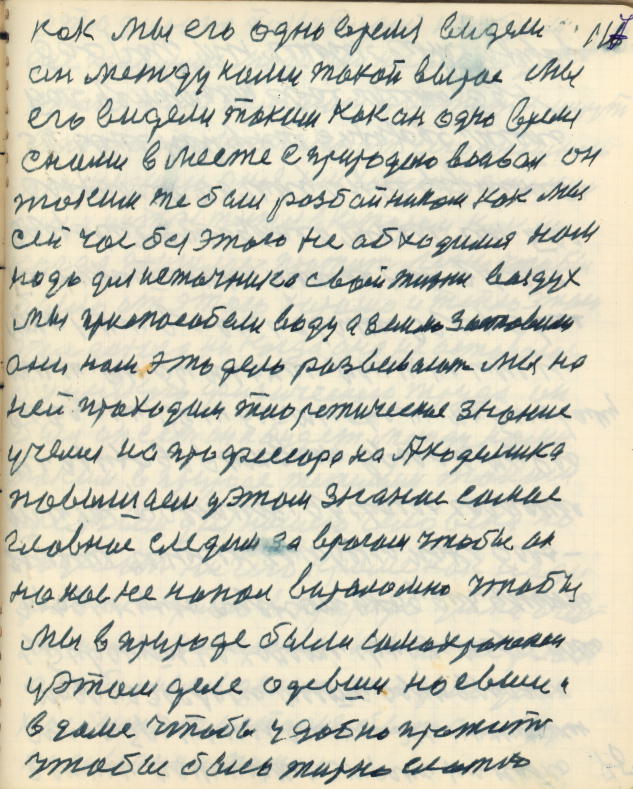 как мы его одно время видели 116
он между нами такой вырос мы
его видели таким как он одно время
снами вместе с природою воевал он
таким же был разбойником как мы
сей час без этого не обходимся нам
надо для источника своей жизни воздух
мы приспособили воду а землю заставили
они нам это дело развевают мы на
ней проходим теоретическое знание
учели на профессора на Академика
повышаем у этом знание самое
главное следим за врагом чтобы он
на нас не напал вероломно чтобы
мы в природе были самохранени
у этом деле одевши наевши и
в доме чтобы удобно прожить
чтобы было жирно слатко